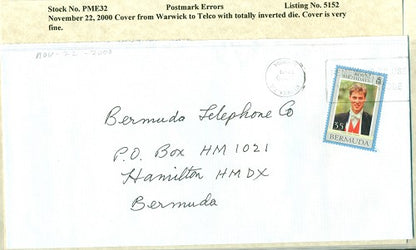 Stock No. PME32 Postmark Errors Listing No. 5152
November 22, 2000 Cover from Warwick to Telco with totally inverted die. Cover is very
fine.
NOV-22-2000
Bermuda Telephone Co
P.O. Box HM 1021
Hamilton HMDX
Bermuda
35c
BERMUDA